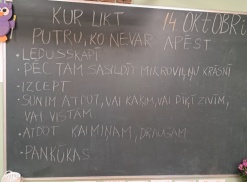 KUR LIKT 14. OKTOBRĪ
PUTRU, KO NEVAR APĒST
• LEDUSSKAPĪ
• PĒC TAM SASILDĪT MIKROVIĻŅU KRĀSNĪ
• IZCEPT
• SUNIM ATDOT, VAI KAĶIM, VAI DĪĶĪ ZIVĪM,
VAI VISTĀM
• ATDOT KAIMIŅAM, DRAUGAM
• PANKŪKAS